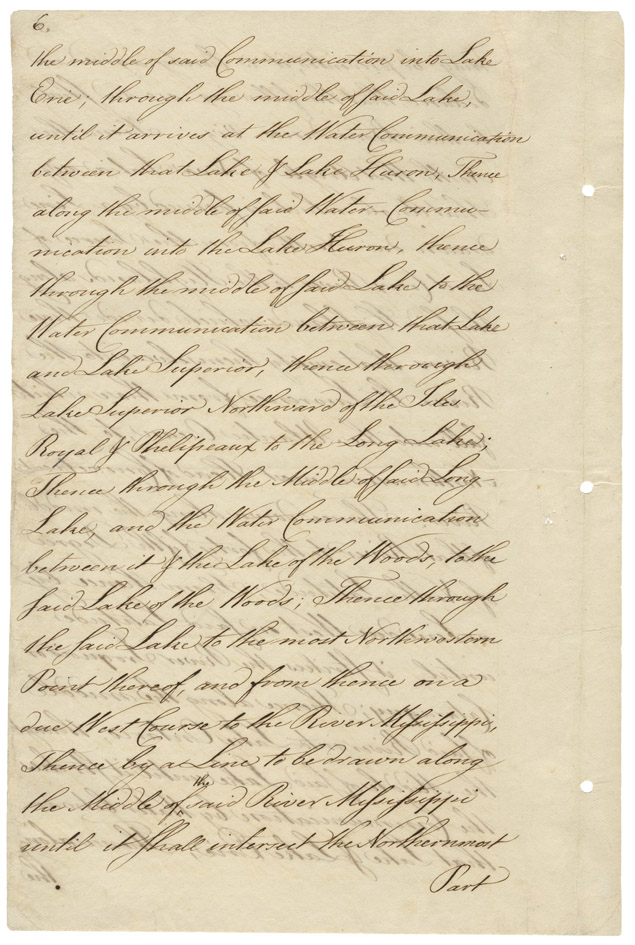 6.
the middle of said Communication into Lake
Erie; through the middle of said Lake,
until it arrives at the Water Communication
between that Lake & Lake Huron, Thence
along the middle of said Water-Commu-
nication into the Lake Huron, thence
through the middle of said Lake to the
Water Communication between that Lake
and Lake Superior, thence through
Lake Superior Northward of the Isles
Royal & Phelipeaux to the Long Lake;
Thence through the Middle of said Long-
Lake, and the Water Communication
between it & the Lake of the Woods, to the
said Lake of the Woods; Thence through
the said Lake to the most Northwestern
Point thereof, and from thence on a
due West Course to the River Missisippi,
Thence by a Line to be drawn along
the Middle of the said River Missisippi
until it shall intersect the Northernmost
Part